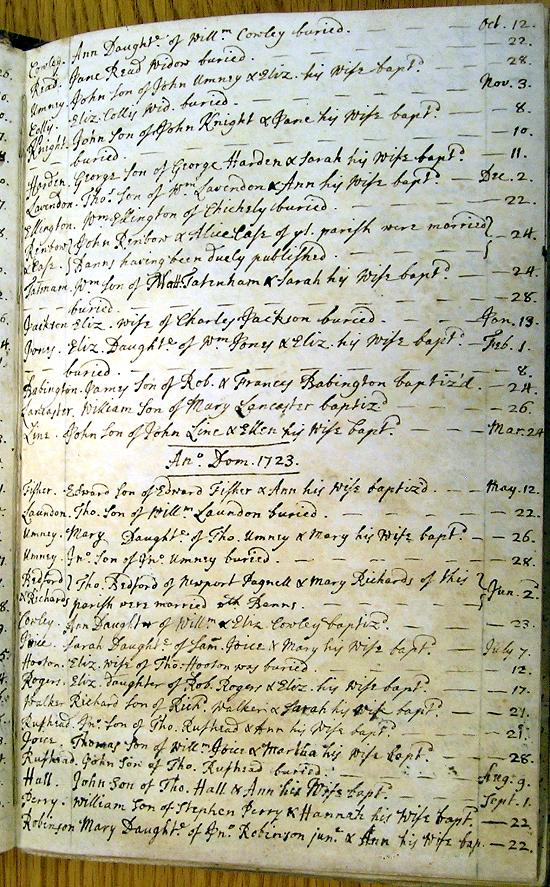 Cowley. Ann Daughtr. of Willm Cowley buried. — — — Oct. 12.
Read. Jane Read Widow buried. — — — 22.
Umney. John Son of John Umney & Eliz. his Wife bapt. — — 28.
Colly. Eliz. Colly Wid. buried. — — — Nov. 3.
Knight. John Son of John Knight & Jane his Wife bapt. — 8.
buried. — — — 10.
Harden. George Son of George Harden & Sarah his Wife bapt. — 11.
Lavendon. Tho. Son of Wm Lavendon & Ann his Wife bapt. — Dec. 2.
Ellington. Wm Ellington of Chichely buried. — — — 22.
Renbow John Renbow & Alice Case of ys. parish were married
& Case. Banns having been duely published. — — — 24.
Tatnam. Wm Son of Matt Tatenham & Sarah his Wife bapt. — 24.
buried. — — — 28.
Jackson Eliz. Wife of Charles Jackson buried. — — Jan. 13.
Jones. Eliz. Daughtr. of Wm Jones & Eliz. his Wife bapt. — Feb. 1.
buried. — — — 8.
Babington. James Son of Rob. & Frances Babington baptiz'd. — 24.
Lancaster. William Son of Mary Lancaster baptiz. — — 26.
Line. John Son of John Line & Ellen his Wife bapt. — — Mar. 24
Ano. Dom. 1723.
Fisher. Edward Son of Edward Fisher & Ann his Wife baptiz'd. — May. 12.
Laundon. Tho. Son of Willm Laundon buried. — — — 22.
Umney. Mary Daughtr. of Tho. Umney & Mary his Wife bapt. — 26.
Umney. Jno. Son of Jno. Umney buried. — — — 28.
Bedford Tho. Bedford of Newport Pagnell & Mary Richards of this
& Richards parish were married with Banns. — — — Jun. 2.
Cowley. Ann Daughtr of Willm & Eliz. Cowley baptiz. — — 23.
Joice. Sarah Daughtr. of Sam. Joice & Mary his Wife bapt. — July 7.
Hooton. Eliz. Wife of Tho. Hooton was buried. — — 12.
Rogers. Eliz. daughter of Rob. Rogers & Eliz. his Wife bapt. — 17.
Walker Richard Son of Rich. Walker & Sarah his Wife bapt. — 21.
Rufhead. Jno. Son of Tho. Rufhead & Ann his Wife bapt. — 21.
Joice. Thomas Son of Willm Joice & Martha his Wife bapt. — 28.
Rufhead. John Son of Tho. Rufhead buried. — — Aug. 9.
Hall. John Son of Tho. Hall & Ann his Wife bapt. — Sept. 1.
Perry. William Son of Stephen Perry & Hannah his Wife bapt. — 22
Robinson Mary Daughtr. of Jno. Robinson junr. & Ann his Wife bap. — 22.